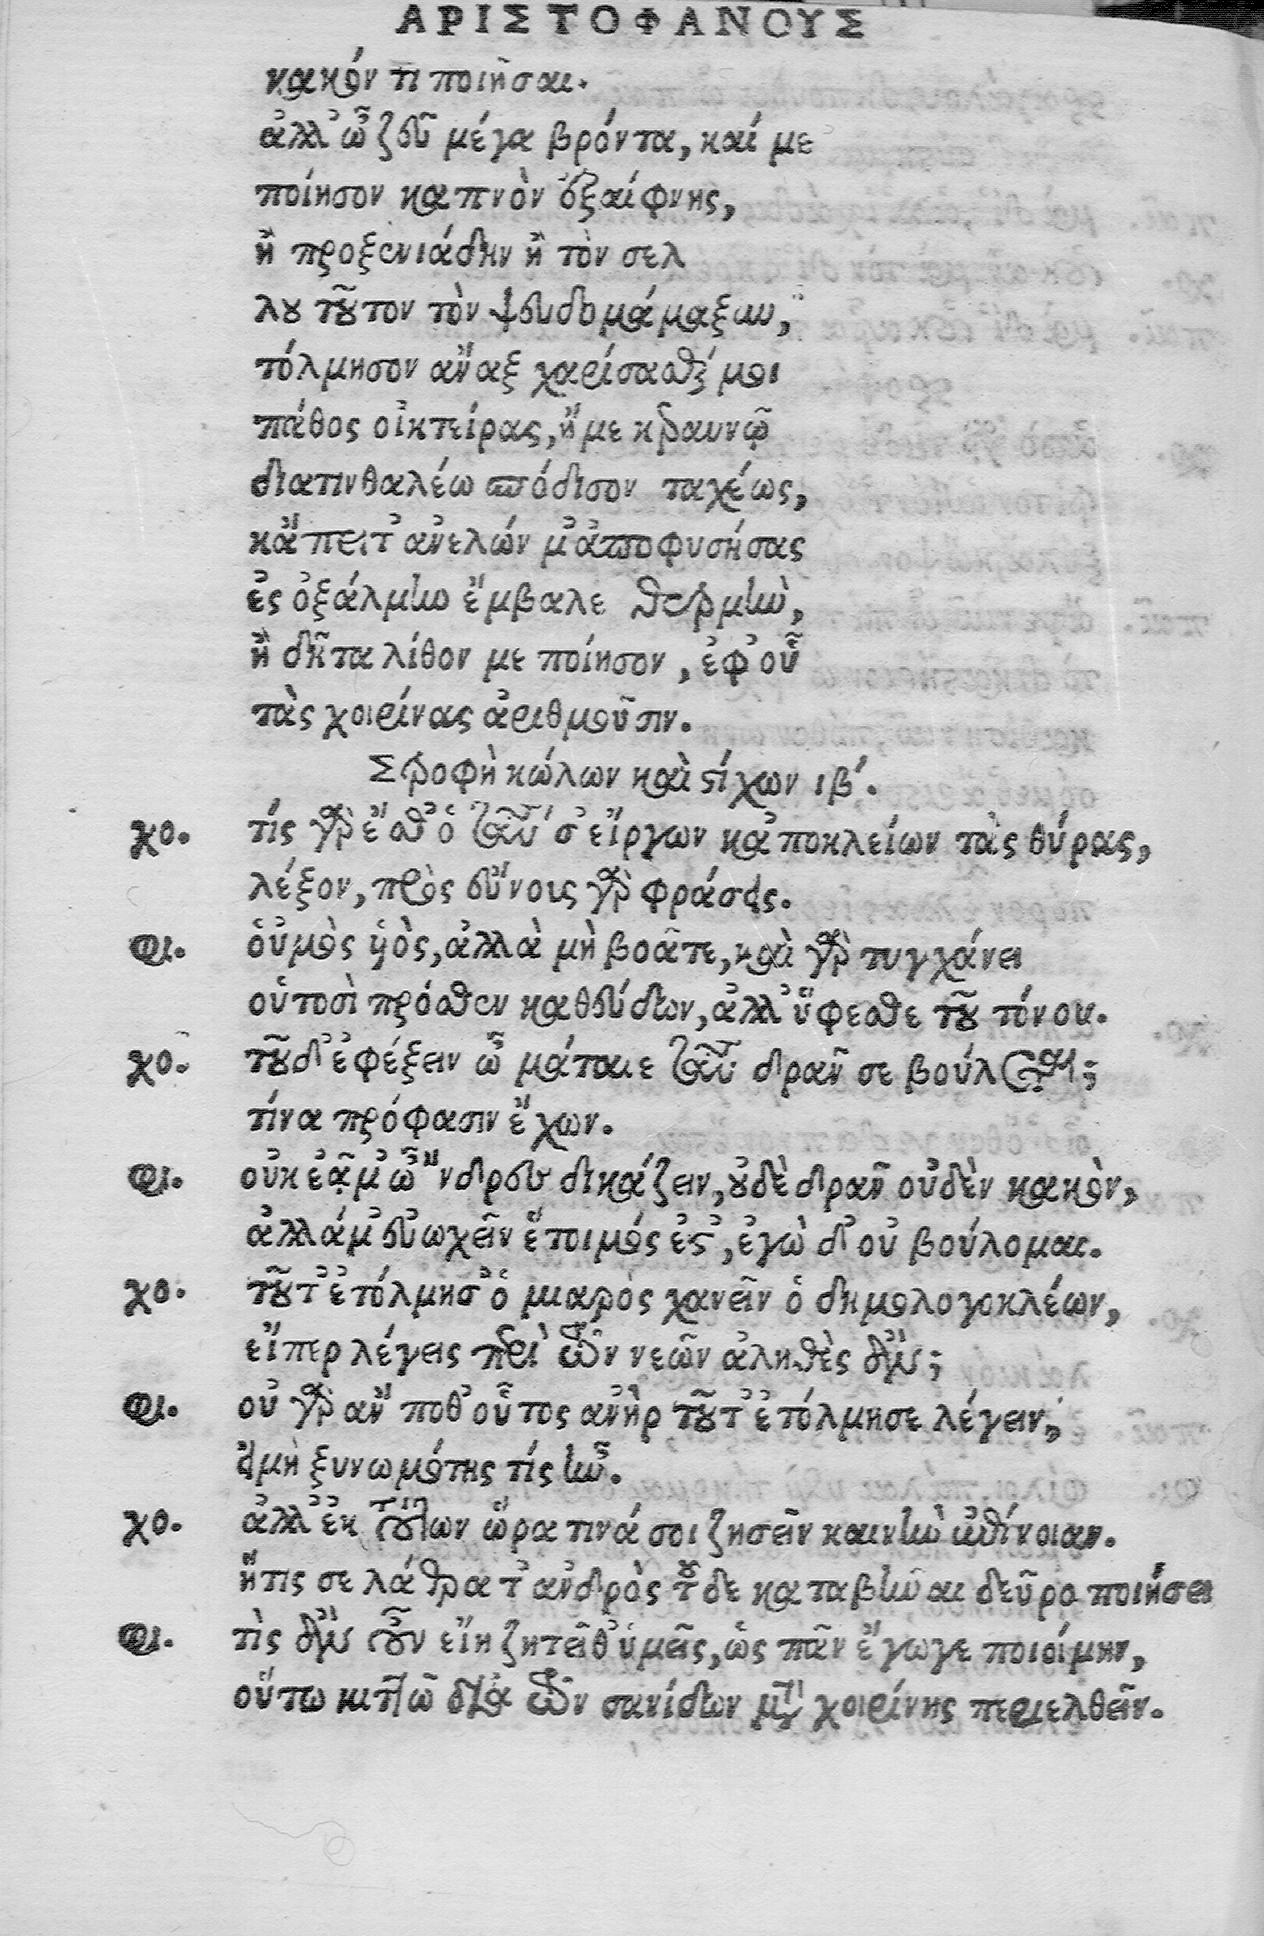 ΑΡΙΣΤΟΦΑΝΟΥΣ
κακόν τι ποιῆσαι.
ἀλλ' ὦ ζεῦ μέγα βρόντα, καί με
ποίησον καπνὸν ἐξαίφνης,
ἢ προξενιάδην ἢ τὸν σελ
λου τοῦτον τὸν ψευδομάμαξυν,
τόλμησον ἄναξ χαρίσασθέ μοι
πάθος οἰκτείρας, ἤ με κεραυνῷ
διατινθαλέω σπόδισον ταχέως,
κἄπειτ' ἀνελών μ' ἀποφυσήσας
ἐς ὀξάλμην ἔμβαλε θερμὴν,
ἢ δῆτα λίθον με ποίησον, ἐφ' οὗ
τὰς χοιρίνας ἀριθμοῦσιν.
Στροφὴ κώλων καὶ στίχων ιβ'.
χο. τίς γὰρ ἔσθ' ὁ ταῦτά σ' εἴργων κἀποκλείων τὰς θύρας,
λέξον, πρὸς εὔνους γὰρ φράσεις.
φι. οὑμὸς ὑὸς, ἀλλὰ μὴ βοᾶτε, καὶ γὰρ τυγχάνει
οὑτοσὶ πρόσθεν καθεύδων, ἀλλ' ὕφεσθε τοῦ τόνου.
χο. τοῦ δ' ἐφέξειν ὦ μάταιε ταῦτα δρᾶν σε βούλεται;
τίνα πρόφασιν ἔχων.
φι. οὐκ ἐᾷ μ' ὦ 'νδρες δικάζειν, οὐδὲ δρᾶν οὐδὲν κακὸν,
ἀλλά μ' εὐωχεῖν ἕτοιμός ἐστ', ἐγὼ δ' οὐ βούλομαι.
χο. τοῦτ' ἐτόλμησ' ὁ μιαρὸς χανεῖν ὁ δημολογοκλέων,
εἴπερ λέγεις περὶ τῶν νεῶν ἀληθὲς
φι. οὐ γὰρ ἄν ποθ' οὗτος ἀνὴρ τοῦτ' ἐτόλμησε λέγειν,
εἰ μὴ ξυνωμότης τίς ἦν.
χο. ἀλλ' ἐκ τούτων ὥρα τινά σοι ζητεῖν καινὴν ἐπίνοιαν.
ἥτις σε λάθρα τ' ἀνδρὸς τοῦδε καταβῆναι δεῦρο ποιήσει
φι. τὶς ἂν οὖν εἴη ζητεῖθ' ὑμεῖς, ὡς πᾶν ἔγωγε ποιοίμην,
οὕτω κιττῶ διὰ τῶν σανίδων μετὰ χοιρίνης περιελθεῖν.